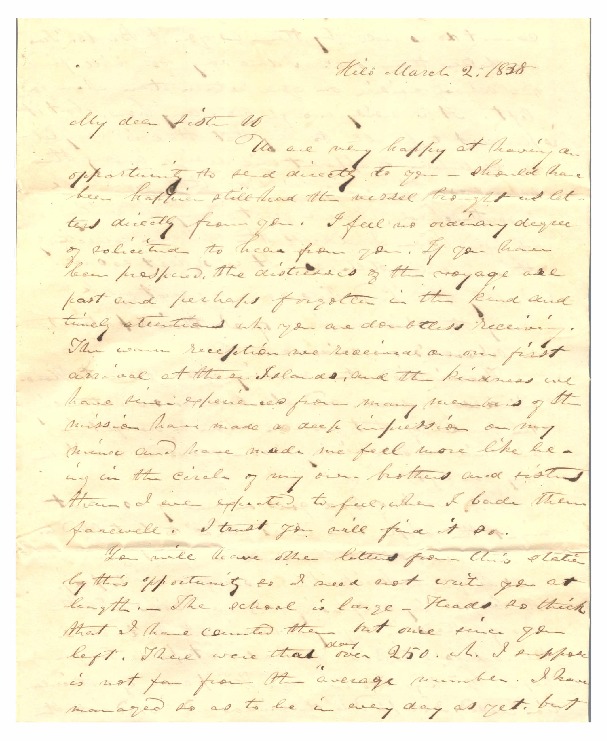 Hilo March 2, 1838
My dear Sister W
We are very happy at having an
opportunity to send directly to you – should have
been happier still had the vessel brought us let-
ters directly from you. I feel no ordinary degree
of solicitude to hear from you. If you have
been prospered, the distresses of the voyage are
past and perhaps forgotten in the kind and
timely attentions wh you are doubtless receiving.
The warm reception we received on our first
arrival at these Islands, and the kindness we
have since experienced from many members of the
mission have made a deep impression on my
mind and have made me feel more like be-
ing in the circle of my own brothers and sisters
than I ever expected to feel, when I bade them
farewell. I trust you will find it so.
You will have other letters from this station
by this opportunity so I need not write you at
length. – The school is large – Heads so thick
that I have counted them but once since you
left. There were that day over 250. wh. I suppose
is not far from the average number. I have
managed so as to be in every day as yet, but